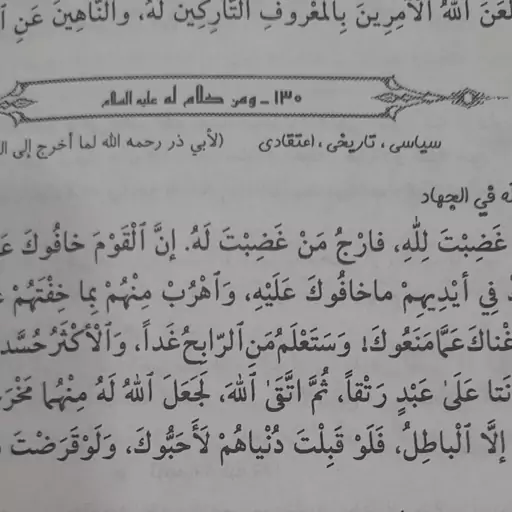 لَعَنَ اللهُ الْآمِرِينَ بِالْمَعْرُوفِ التَّارِكِينَ لَهُ، وَالنَّاهِينَ عَنِ
١٣٠ ـ ومن كلام له عليه السلام
سیاسی، تاریخی، اعتقادی (لأبي ذر رحمه الله لما أخرج إلى
في الجهاد
غَضِبْتَ لِلّٰهِ، فارْجُ مَنْ غَضِبْتَ لَهُ. إنَّ ٱلْقَوْمَ خافُوكَ
فِي أَيْدِيهِمْ ماخافُوكَ عَلَيْهِ، وَٱهْرُبْ مِنْهُمْ بِما خِفْتَهُمْ
عَمَّا مَنَعُوكَ! وَسَتَعْلَمُ مَنِ ٱلرّابِحُ غَداً، وَٱلْأَكْثَرُ حُسَّد
عَلَىٰ عَبْدٍ رَتْقاً، ثُمَّ ٱتَّقَىٰ ٱللهَ، لَجَعَلَ ٱللهُ لَهُ مِنْهُما
إلَّا ٱلْباطِلُ، فَلَوْ قَبِلْتَ دُنْياهُمْ لَأَحَبُّوكَ، وَلَوْ قَرَضْتَ